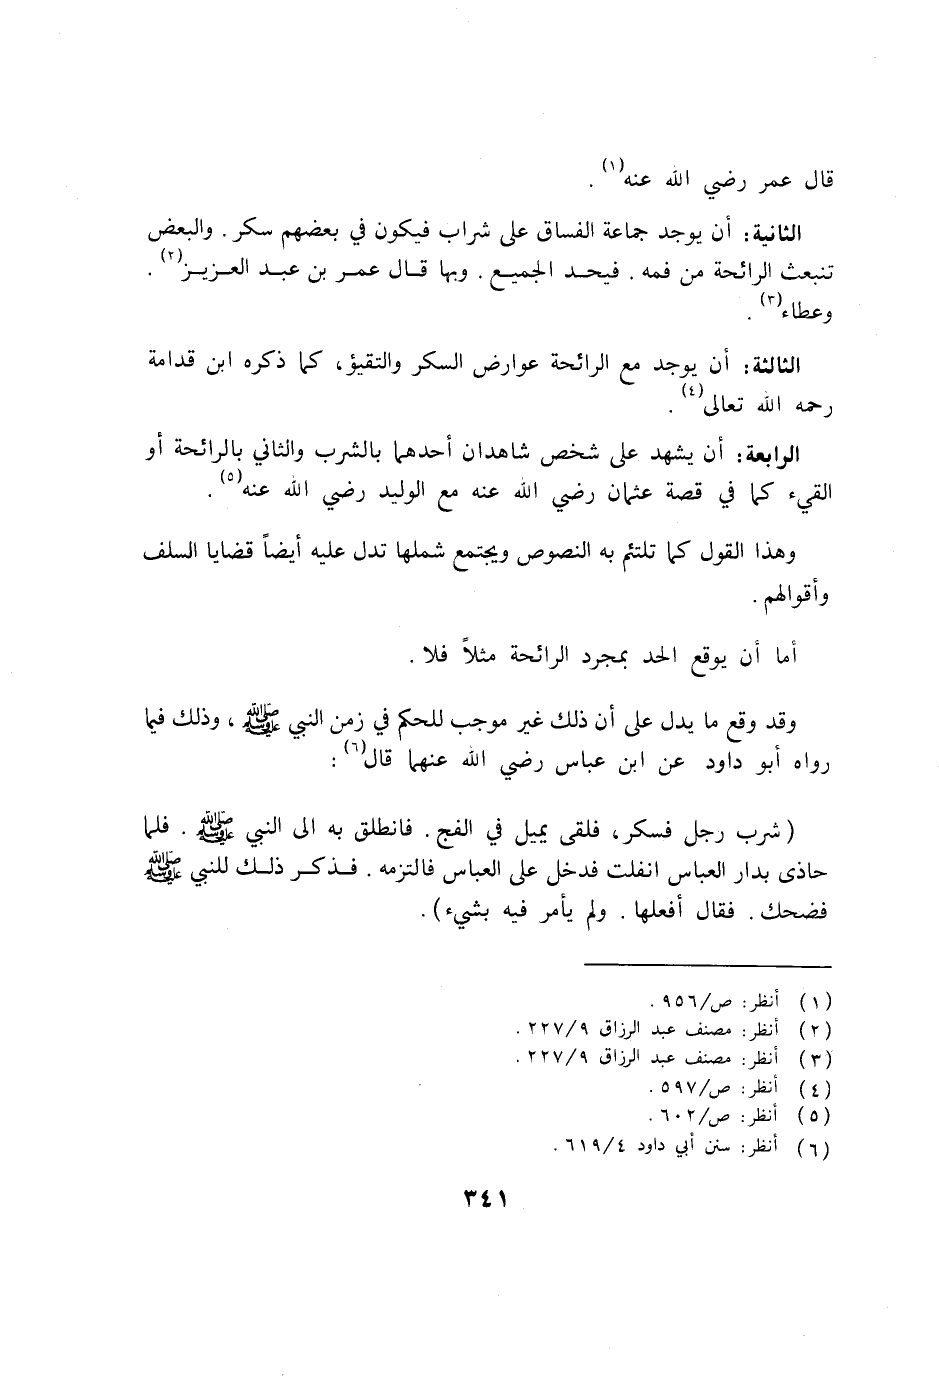 قال عمر رضي الله عنه(١) .
الثانية: أن يوجد جماعة الفساق على شراب فيكون في بعضهم سكر . والبعض
تنبعث الرائحة من فمه . فيحد الجميع . وبها قال عمر بن عبد العزيز(٢) .
وعطاء(٣) .
الثالثة: أن يوجد مع الرائحة عوارض السكر والتقيؤ، كما ذكره ابن قدامة
رحمه الله تعالى(٤) .
الرابعة: أن يشهد على شخص شاهدان أحدهما بالشرب والثاني بالرائحة أو
القيء كما في قصة عثمان رضي الله عنه مع الوليد رضي الله عنه(٥) .
وهذا القول كما تلتئم به النصوص ويجتمع شملها تدل عليه أيضاً قضايا السلف
وأقوالهم .
أما أن يوقع الحد بمجرد الرائحة مثلاً فلا .
وقد وقع ما يدل على أن ذلك غير موجب للحكم في زمن النبي ﷺ ، وذلك فيما
رواه أبو داود عن ابن عباس رضي الله عنهما قال(٦) :
( شرب رجل فسكر، فلقى يميل في الفج . فانطلق به الى النبي ﷺ . فلما
حاذى بدار العباس انفلت فدخل على العباس فالتزمه . فذكر ذلك للنبي ﷺ
فضحك . فقال أفعلها . ولم يأمر فيه بشيء) .
(١) أنظر: ص/٩٥٦ .
(٢) أنظر: مصنف عبد الرزاق ٢٢٧/٩ .
(٣) أنظر: مصنف عبد الرزاق ٢٢٧/٩ .
(٤) أنظر: ص/٥٩٧ .
(٥) أنظر: ص/٦٠٢ .
(٦) أنظر: سنن أبي داود ٦١٩/٤ .
٣٤١